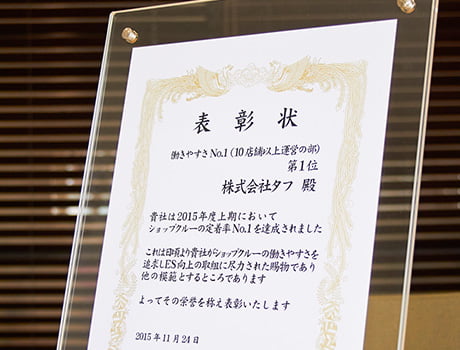 表彰状
働きやすさ No.1 (10店舗以上運営の部)
第1位
株式会社タフ 殿
貴社は2015年度上期において
ショップクルーの定着率No.1を達成されました
これは日頃より貴社がショップクルーの働きやすさを
追求しES向上の取組に尽力された賜物であり
他の模範とするところであります
よってその栄誉を称え表彰いたします
2015年11月24日